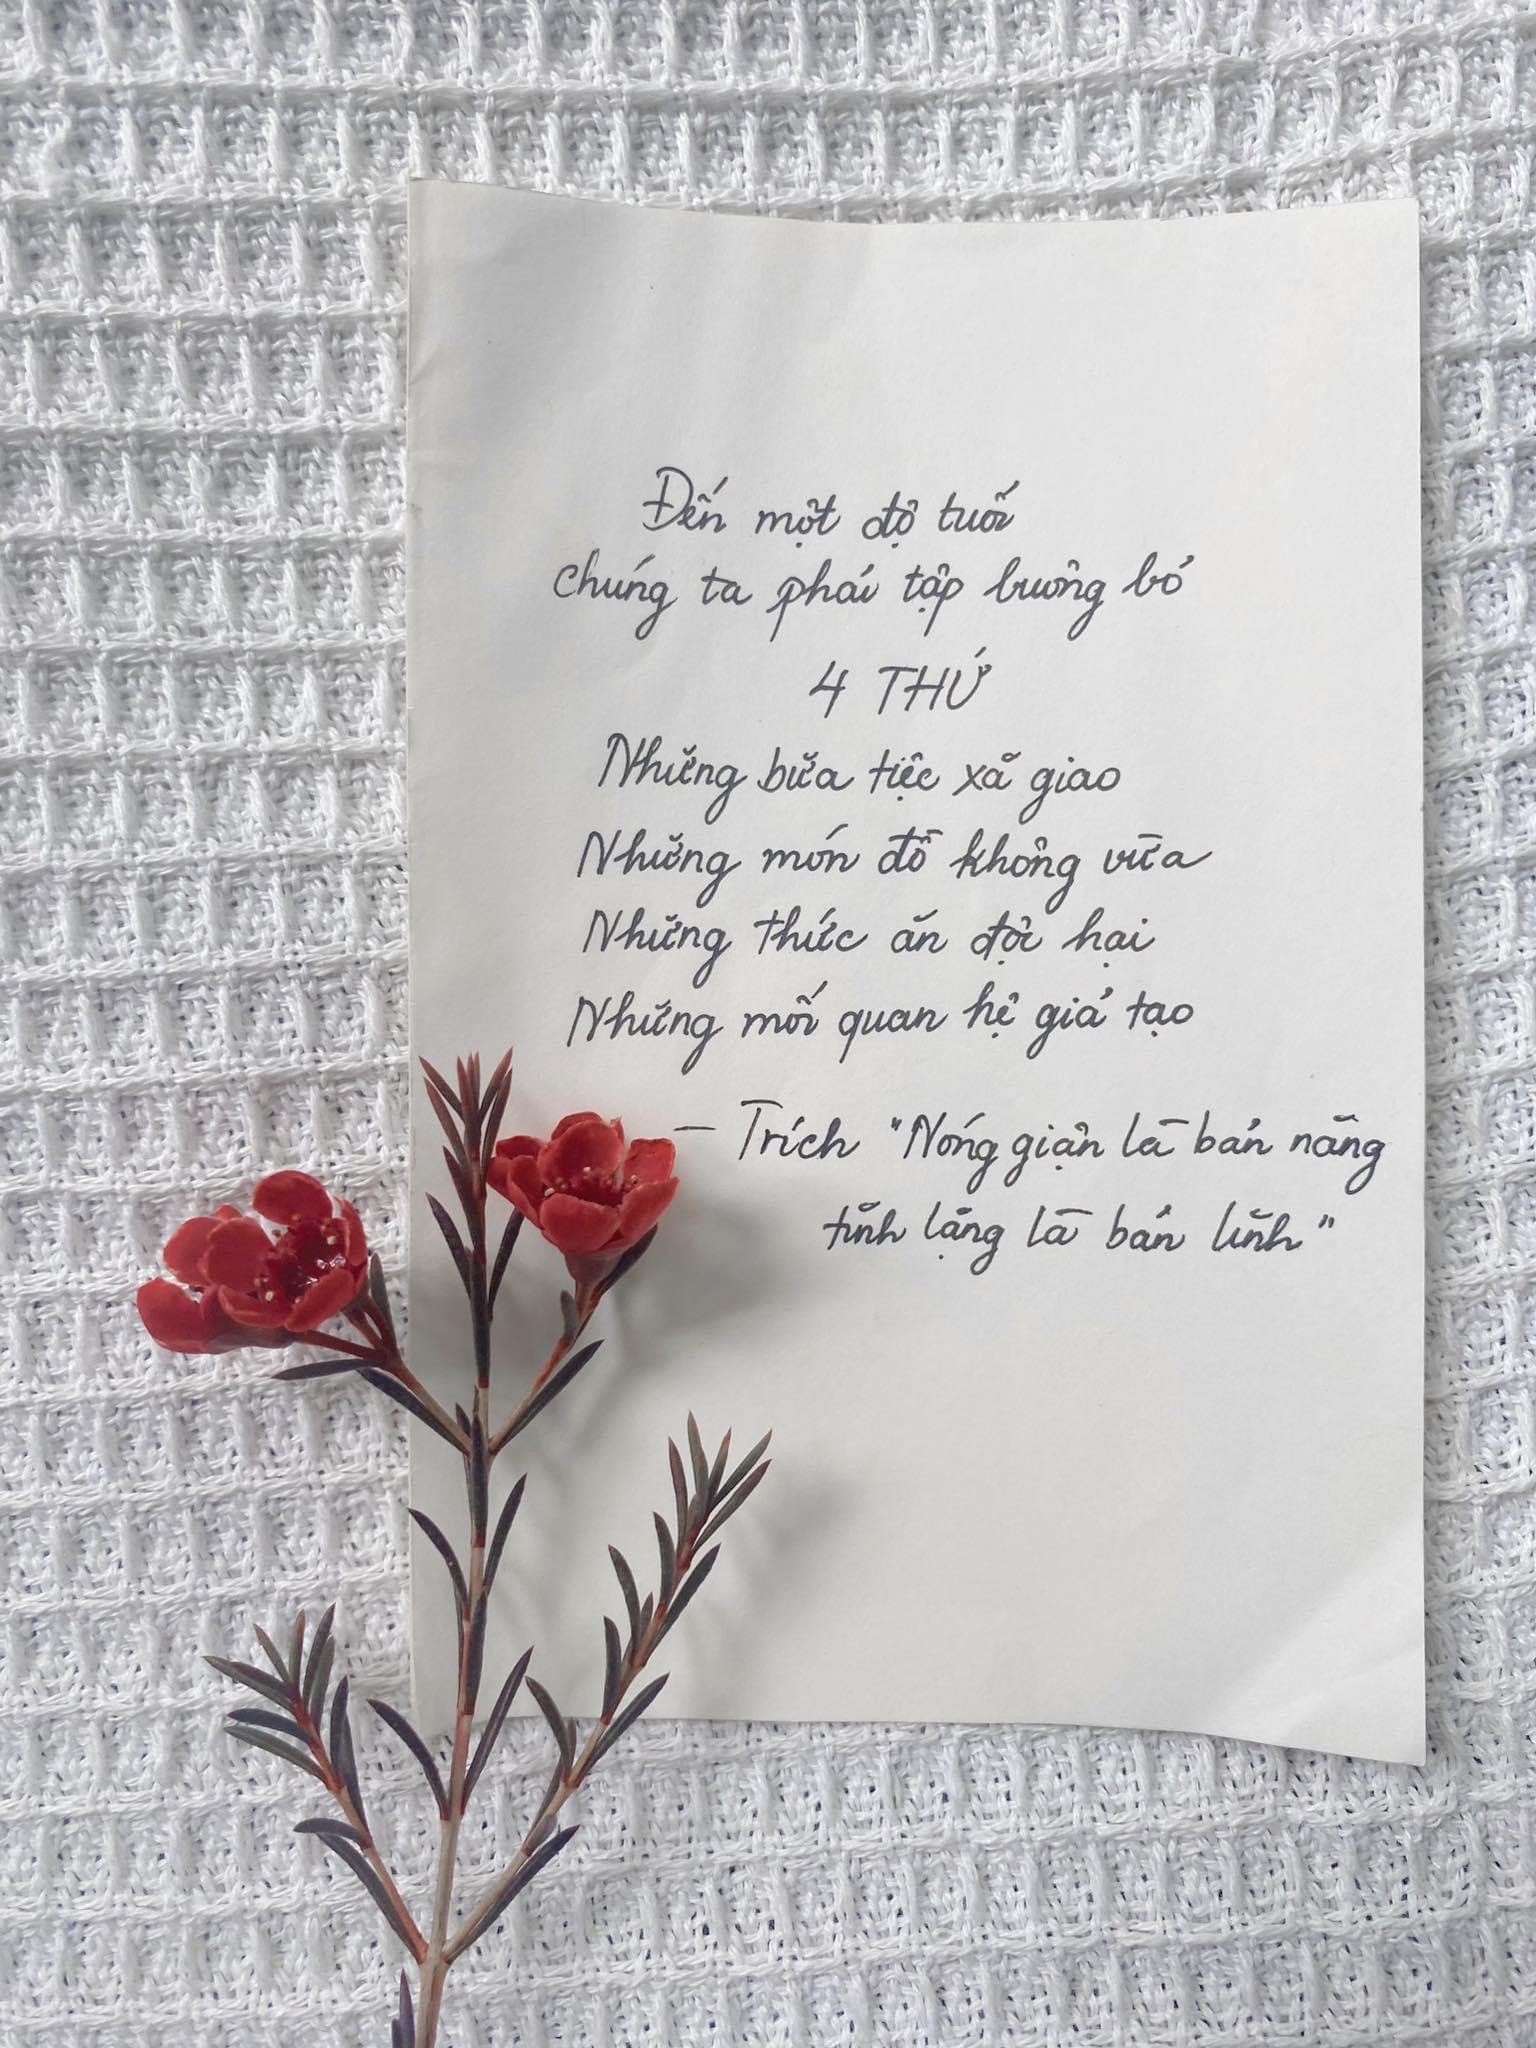 Đến một độ tuổi
chúng ta phải tập buông bỏ
4 THỨ
Những bữa tiệc xã giao
Những món đồ không vừa
Những thức ăn độc hại
Những mối quan hệ giả tạo
— Trích "Nóng giận là bản năng
tĩnh lặng là bản lĩnh"